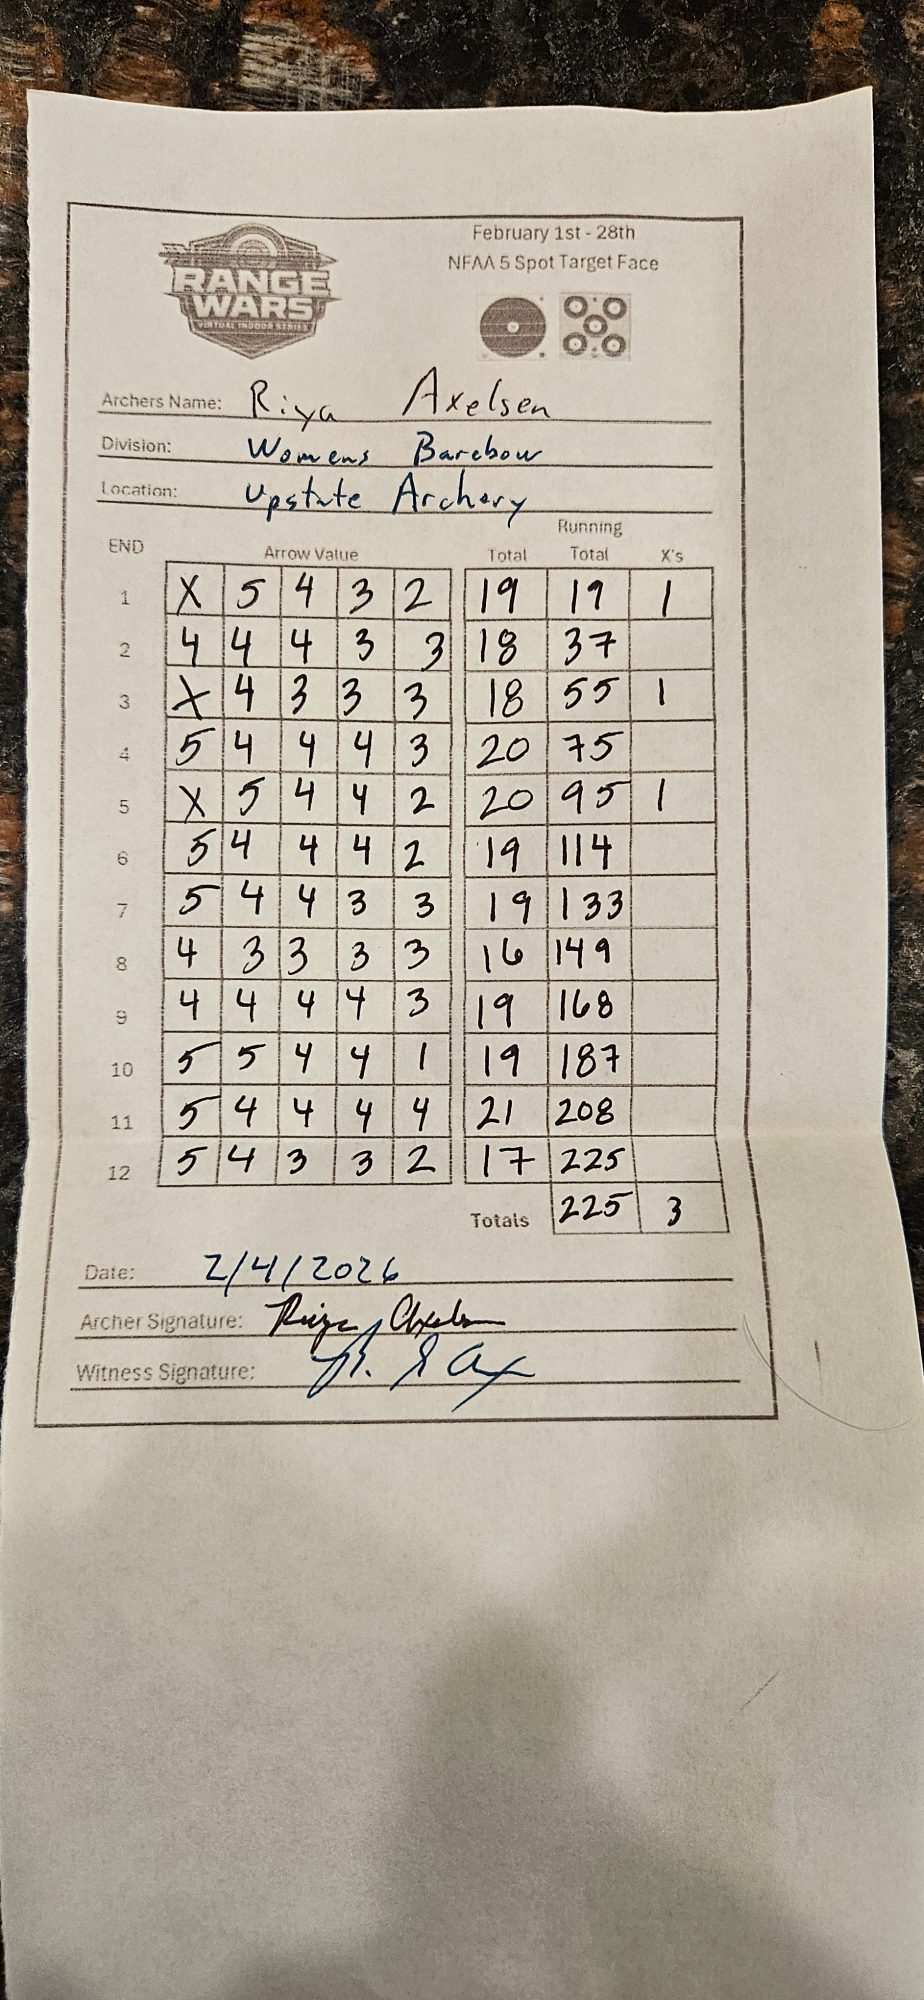 RANGE
WARS
VIRTUAL INDOOR SERIES
February 1st - 28th
NFAA 5 Spot Target Face
Archers Name: Riya Axelsen
Division: Womens Barebow
Location: Upstate Archery
END Arrow Value Total Running Total X's
1 X 5 4 3 2 19 19 1
2 4 4 4 3 3 18 37
3 X 4 3 3 3 18 55 1
4 5 4 4 4 3 20 75
5 X 5 4 4 2 20 95 1
6 5 4 4 4 2 19 114
7 5 4 4 3 3 19 133
8 4 3 3 3 3 16 149
9 4 4 4 4 3 19 168
10 5 5 4 4 1 19 187
11 5 4 4 4 4 21 208
12 5 4 3 3 2 17 225
Totals 225 3
Date: 2/4/2026
Archer Signature: Riya Axelsen
Witness Signature: